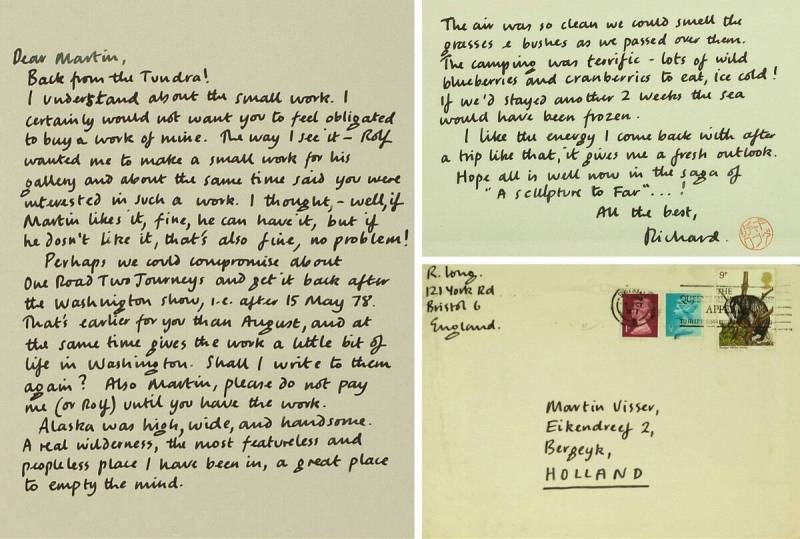 Dear Martin,
Back from the Tundra!
I understand about the small work. I
certainly would not want you to feel obligated
to buy a work of mine. The way I see it – Rolf
wanted me to make a small work for his
gallery and about the same time said you were
interested in such a work. I thought, – well, if
Martin likes it, fine, he can have it, but if
he dosn't like it, that's also fine, no problem!
Perhaps we could compromise about
One Road Two Journeys and get it back after
the Washington show, i.e. after 15 May 78.
That's earlier for you than August, and at
the same time gives the work a little bit of
life in Washington. Shall I write to them
again? Also Martin, please do not pay
me (or Rolf) until you have the work.
Alaska was high, wide, and handsome.
A real wilderness, the most featureless and
peopleless place I have been in, a great place
to empty the mind.
The air was so clean we could smell the
grasses & bushes as we passed over them.
The camping was terrific – lots of wild
blueberries and cranberries to eat, ice cold!
If we'd stayed another 2 weeks the sea
would have been frozen.
I like the energy I come back with after
a trip like that, it gives me a fresh outlook.
Hope all is well now in the saga of
"A sculpture to Far"...!
All the best,
Richard.
R. Long.
121 York Rd
Bristol 6
England.
9p
THE
QUEEN
APPE
Martin Visser,
Eikendreef 2,
Bergeyk,
HOLLAND